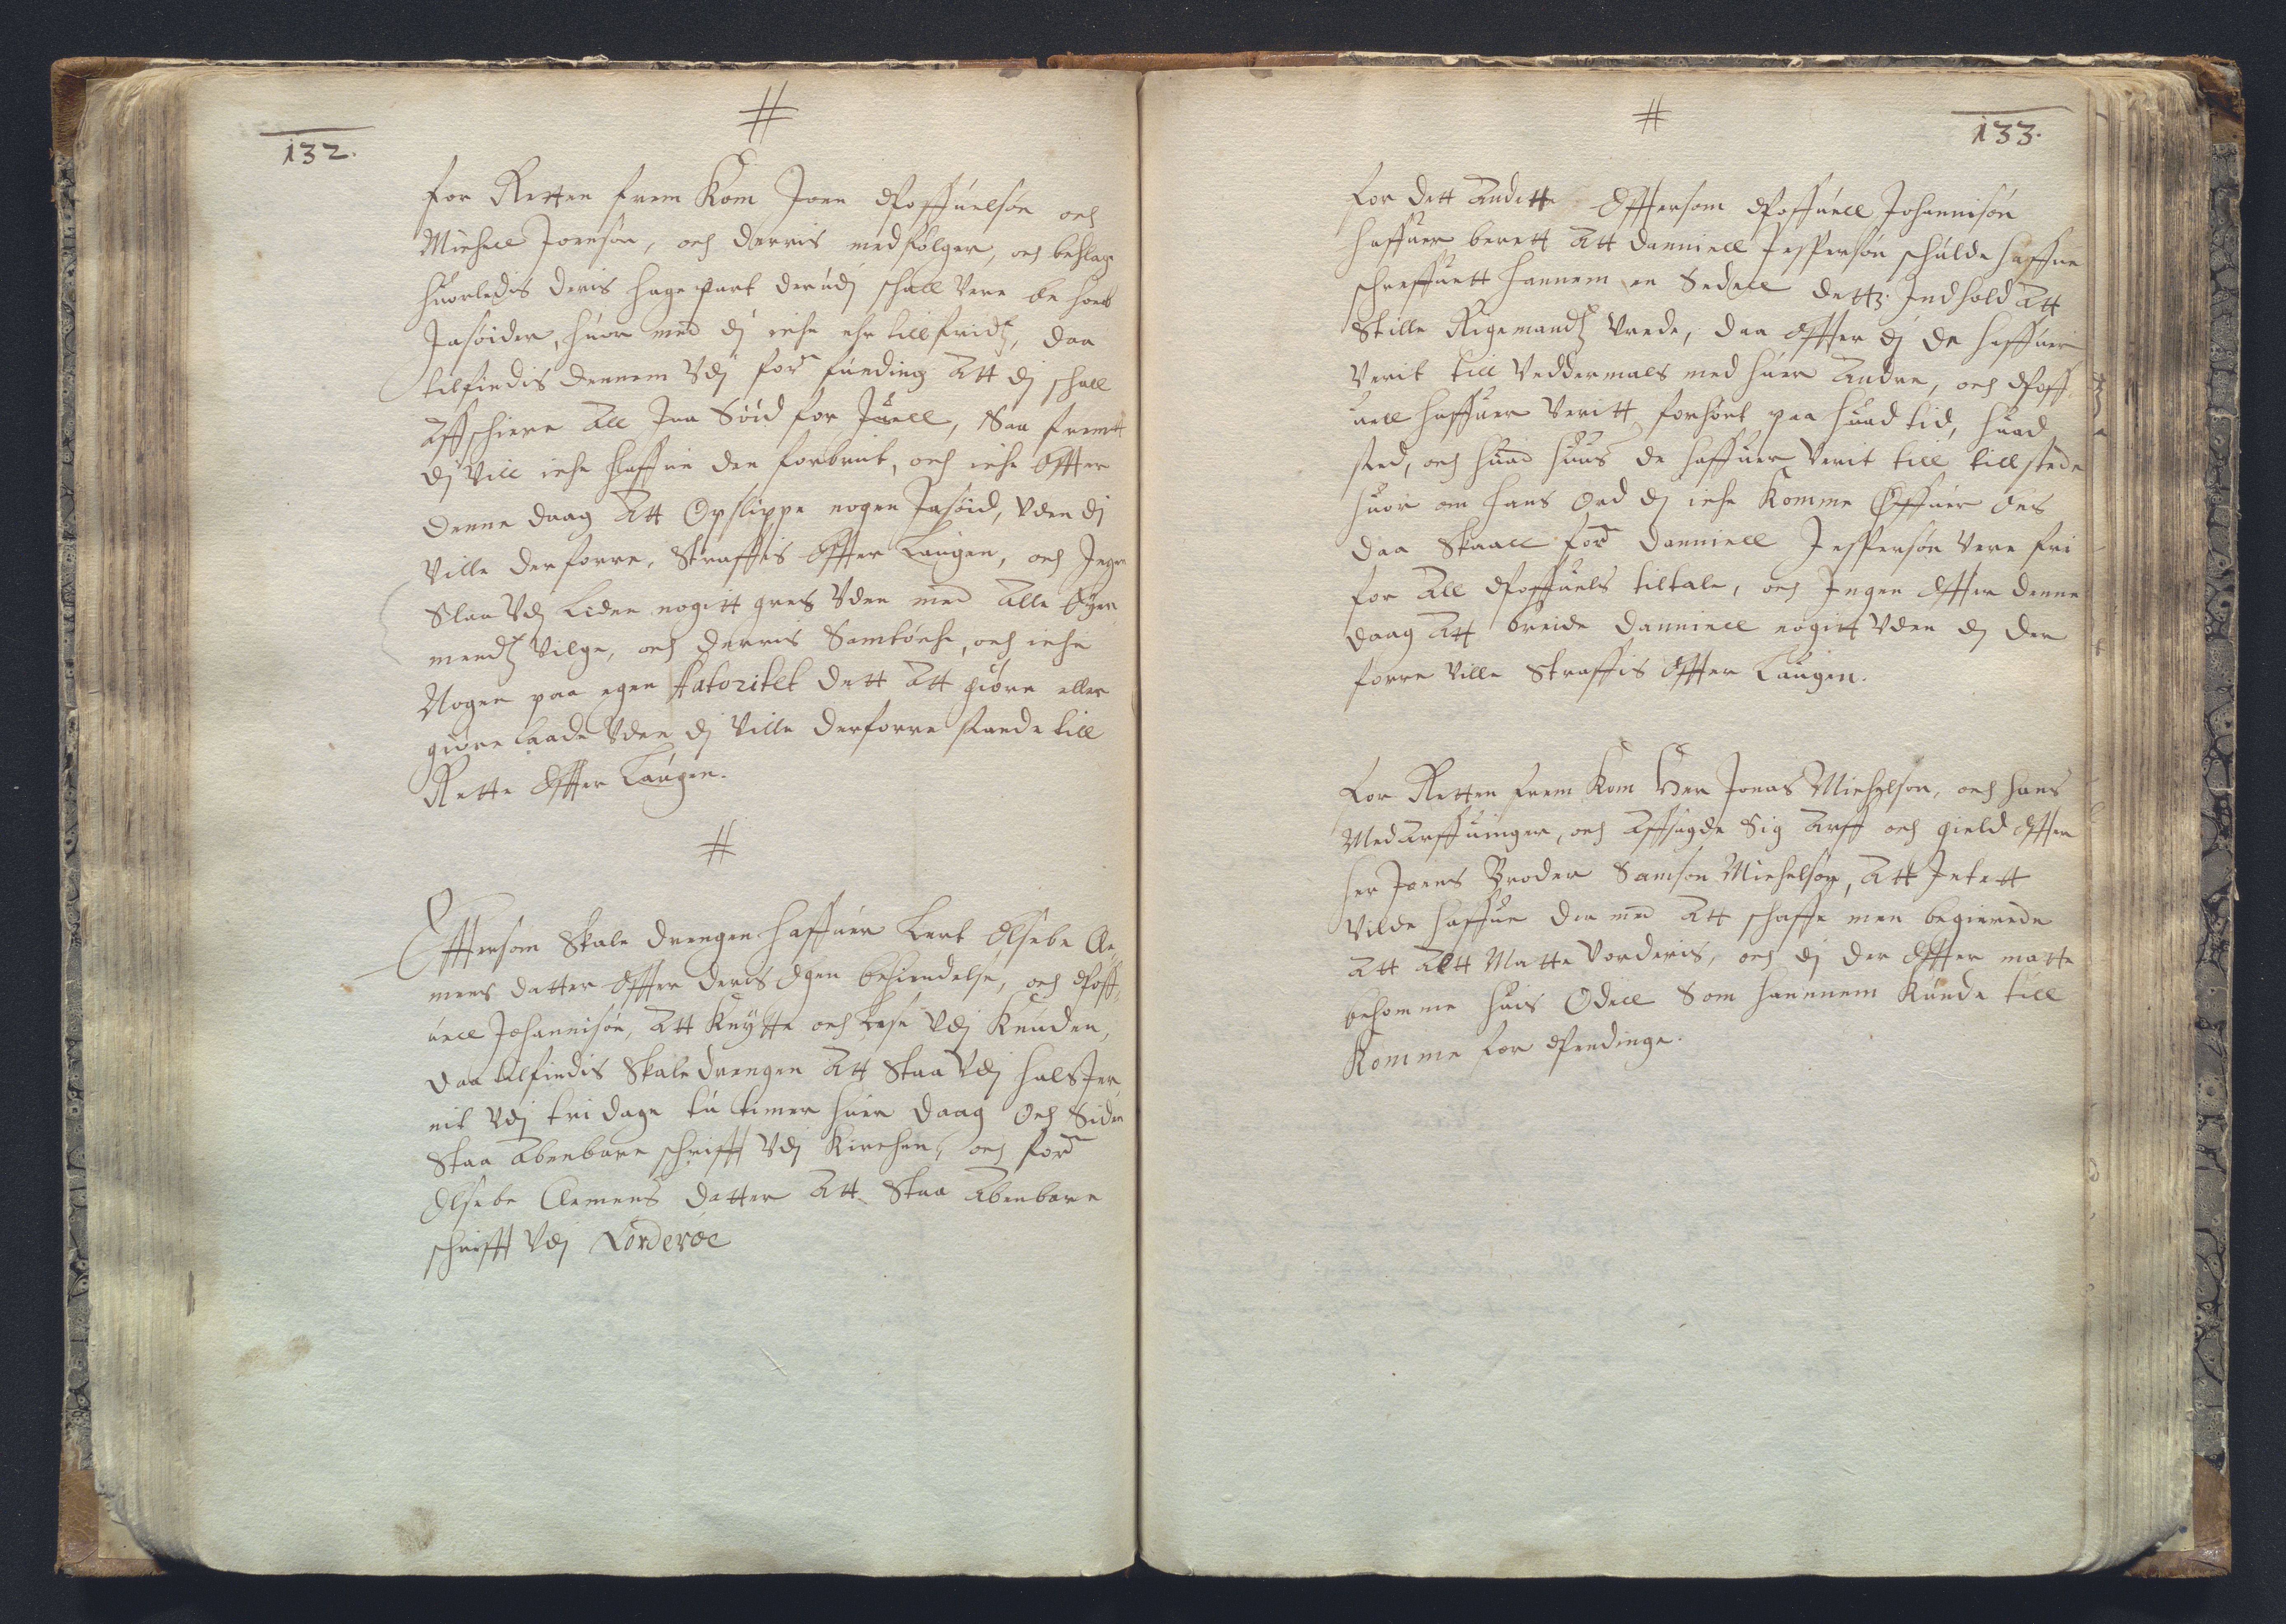 #
132.
for Retten frem Kom Joen Poffuelsøn och
Michell Joensøn, och derris medfølger, och beklage
huorledis deris hagepart derudj schall vere be
huor med dj iche ehr tillfridtz, daa
tilfindis dennem Vdj for funding Att dj schall
Affschiere All Jnn Søid for Juell, Saa fremt
dj Vill iche haffue den forbrut, och iche Effter
denne daag Att Opslippe nogen Jnsøid, Vden dj
Ville derforre, Straffis Effter Laugen, och Jngen
Slaa Vdj Liden nogitt gres Vden med Alle Eyer
mendtz Vilge, och derris Samtøche, och iche
Nogen paa egen Autoritet dett Att giøre eller
giøre laade Vden dj Ville derforre stande till
Rette Effter Laugen.
#
Efftersom Skale drengen haffuer Lert Elsebe Cle
mens datter Effter deris Egen bekiendelse, och Poff
uell Johannisøn, Att Knytte och Løse Vdj Knuden,
daa tilfindis Skale drengen Att Staa Vdj halsJer
nit Vdj tri dage tu timer huer daag Och Siden
Staa Abenbare schrifft Vdj Kirchen, och for
Elsebe Clemens datter Att Staa Abenbare
schrifft Vdj
#
133.
For dett Anditt Efftersom Poffuell Johannisøn
haffuer berett Att danniell Jespersøn schulde haffue
schreffuett hannem en Sedell dettz Jndhold Att
Stille Rigemandtz Vrede, daa Effter dj de haffuer
Verit till Veddermals med huer Andre, och Poff
uell haffuer Veritt forhørt paa huad tid, huad
sted, och huad huus de haffuer Verit till tillstede
huor om hans Ord dj iche Komme Offuer Ens
daa Skaall for danniell Jespersøn Vere fri
for All Poffuels tiltale, och Jngen Effter denne
daag Att breide danniell nogitt Vden dj der
forre Ville Straffis Effter Laugen.
For Retten frem Kom Her Jonas Michelsøn, och hans
Medarffuinger, och Affsagde Sig Arff och gield Effter
her Joens Broder Samson Michelsøn, Att Jntett
Vilde haffue der med Att schaffe men begierede
Att Alt Matte Vorderis, och dj der Effter matte
bekomme huis Odell Som hannem Kunde till
Komme for Pendinge.